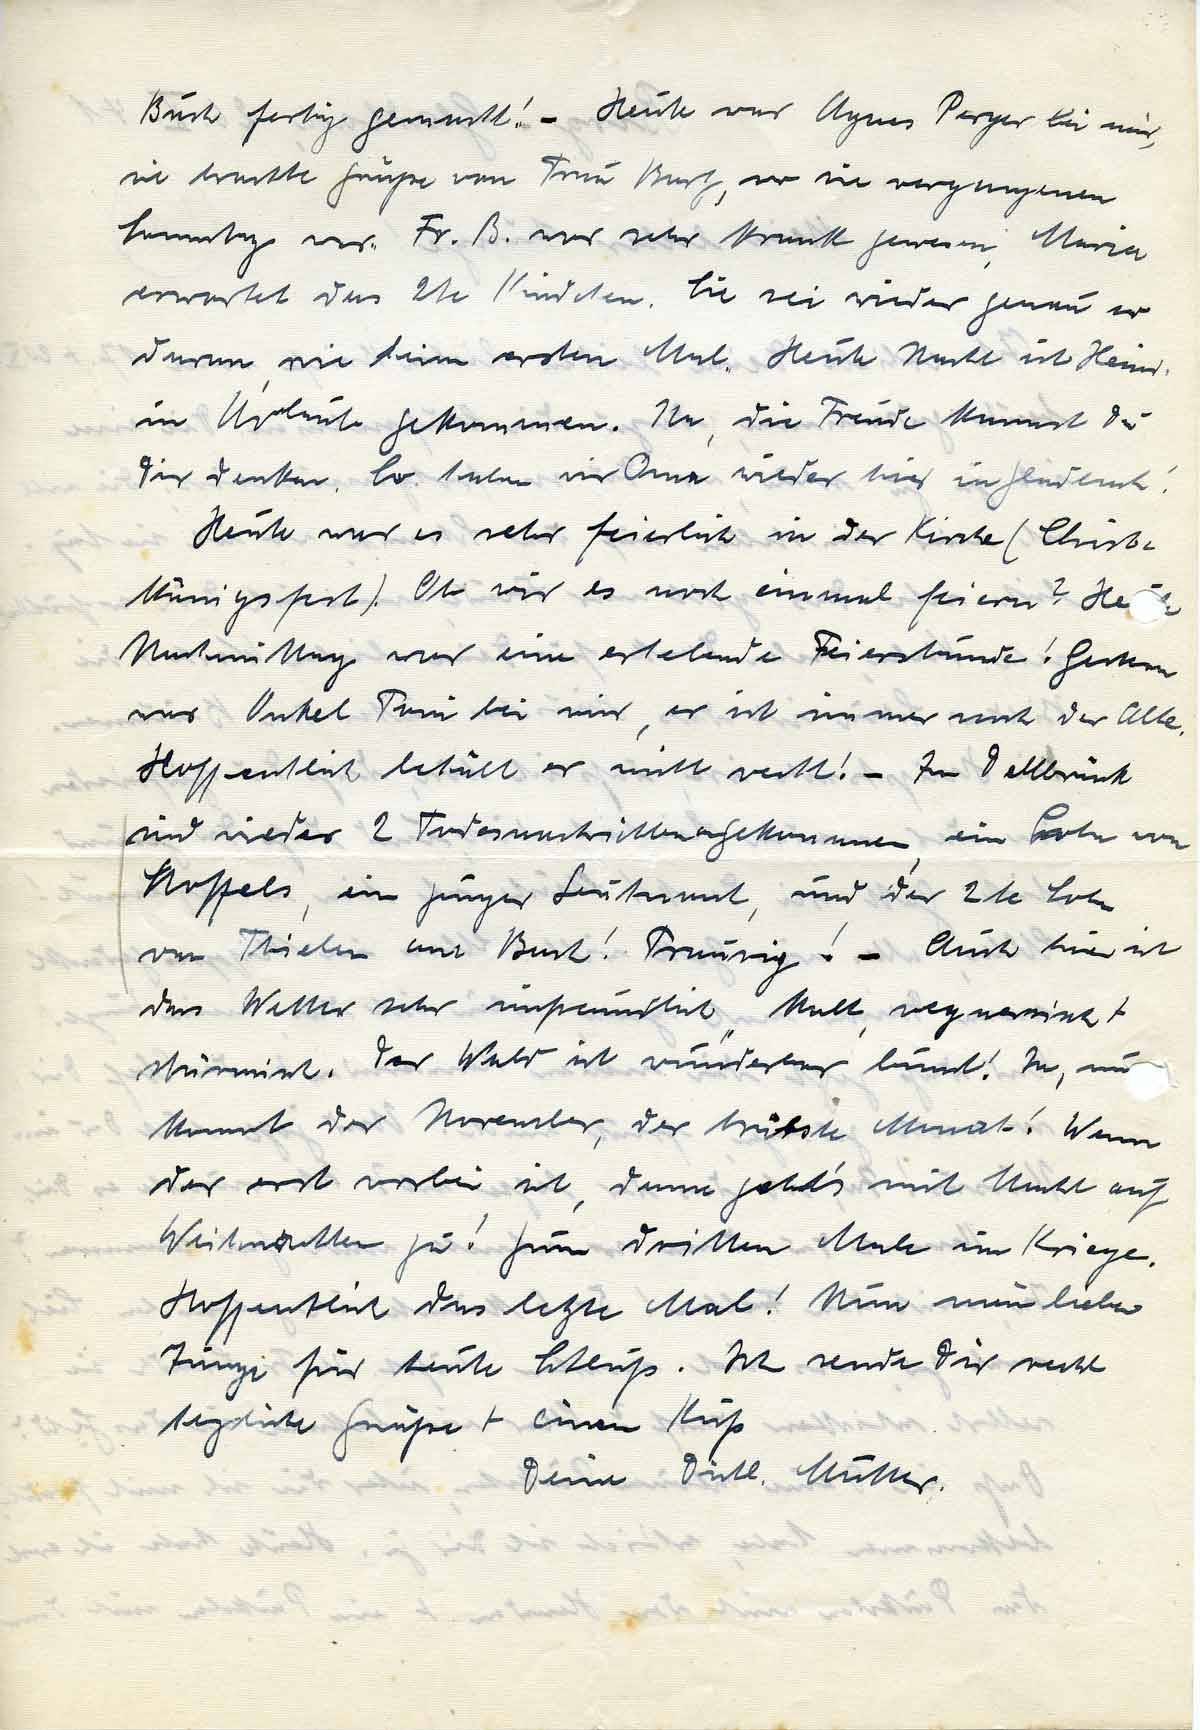 Buch fertig gemacht! – Heute war Agnes Perger bei mir,
sie brachte Grüße von Frau Burg, wo sie vergangenen
Sonntag war. Fr. B. war sehr krank gewesen, Maria
erwartet das 2te Kindchen. Sie sei wieder genau so
daran, wie beim ersten Mal. Heute Nacht ist Heinr.
in Urlaub gekommen. Na, die Freude kannst Du
Dir denken. So haben wir Oma wieder hier in
Heute war es sehr feierlich in der Kirche (Christ-
königsfest). Ob wir es noch einmal feiern? Heute
Nachmittag war eine erhebende Feierstunde! Gestern
war Onkel Toni bei mir, er ist immer noch der Alte.
Hoffentlich behält er nicht recht! – In Dellbrück
sind wieder 2 Todesnachrichten gekommen, ein Sohn von
Koffels, ein junger Leutnant, und der 2te Sohn
von Thielen am Buch! Traurig! – Auch hier ist
das Wetter sehr unfreundlich, kalt, regnerisch +
stürmisch. Der Wald ist wunderbar bunt! Ja, nun
kommt der November, der trübste Monat! Wenn
der erst vorbei ist, dann geht's mit Macht auf
Weihnachten zu! Zum dritten Male im Kriege.
Hoffentlich das letzte Mal! Nun mein lieber
Junge für heute Schluß. Ich sende Dir recht
herzliche Grüße + einen Kuß
Deine Dichl. Mutter.